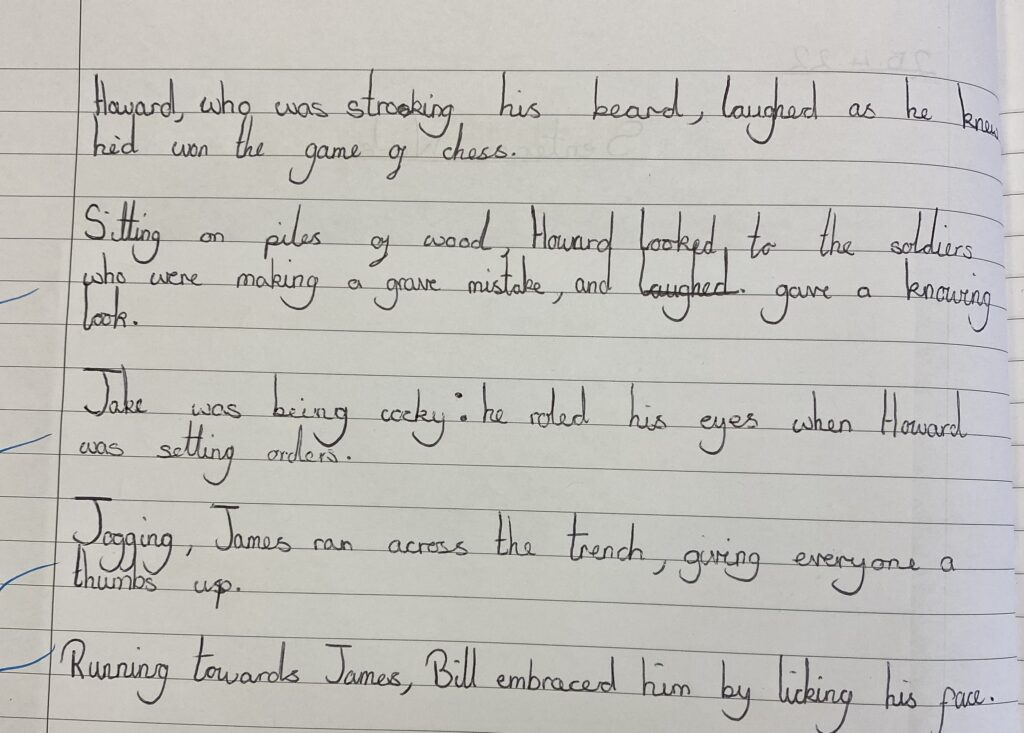 Howard, who was strooking his beard, laughed as he knew
he'd won the game of chess.
Sitting on piles of wood, Howard looked, to the soldiers
who were making a grave mistake, and laughed. gave a knowing
look.
Jake was being cocky: he roled his eyes when Howard
was setting orders.
Jogging, James ran across the trench, giving everyone a
thumbs up.
Running towards James, Bill embraced him by licking his face.